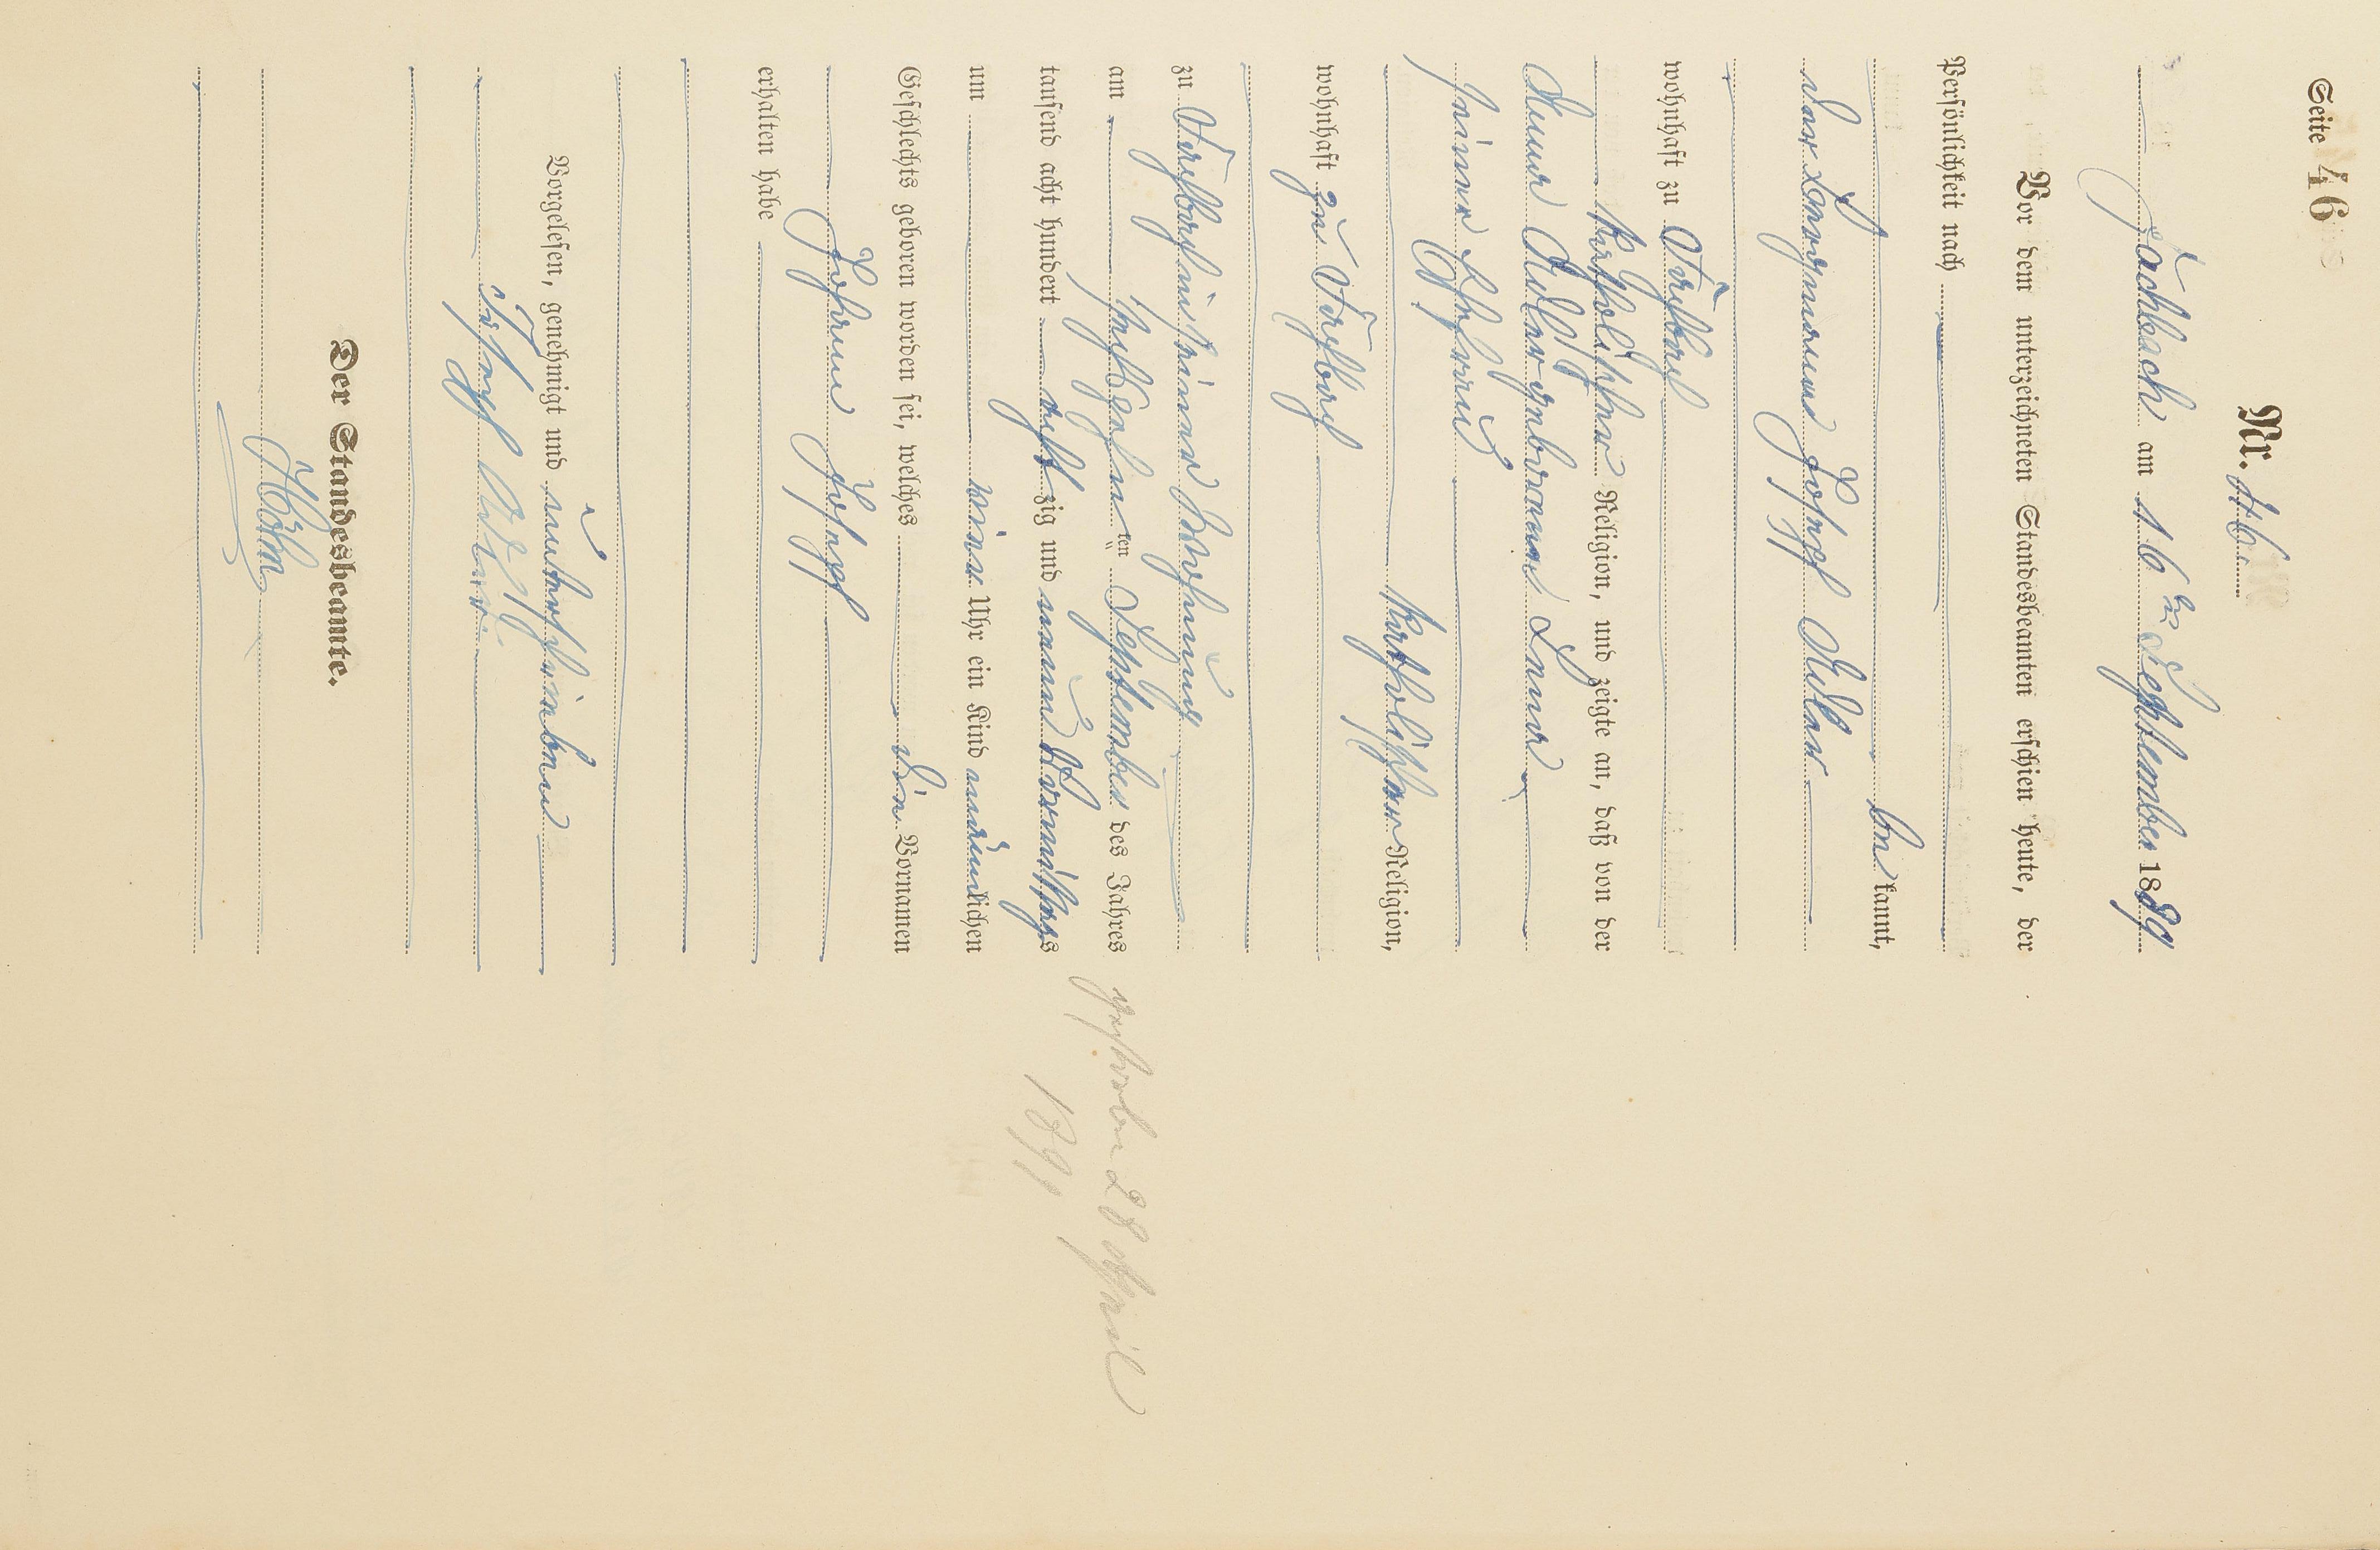 Seite 46
Nr. 46.
Jachbach am 16ten September 1889
Vor dem unterzeichneten Standesbeamten erschien heute, der
Persönlichkeit nach
be kannt,
der Bergmann Josef Adler
wohnhaft zu
katholischer Religion, und zeigte an, daß von der
Anna Adler geborenen
seiner Ehefrau
katholischer Religion,
wohnhaft zu
zu in seiner Wohnung
am sechszehn ten September des Jahres
tausend acht hundert acht zig und neun Vormittags
um ein Uhr ein Kind männlichen
Geschlechts geboren worden sei, welches die Vornamen
Johann Josef
erhalten habe
Vorgelesen, genehmigt und unterschrieben
Josef Adler
Der Standesbeamte.
gestorben 28 April
189